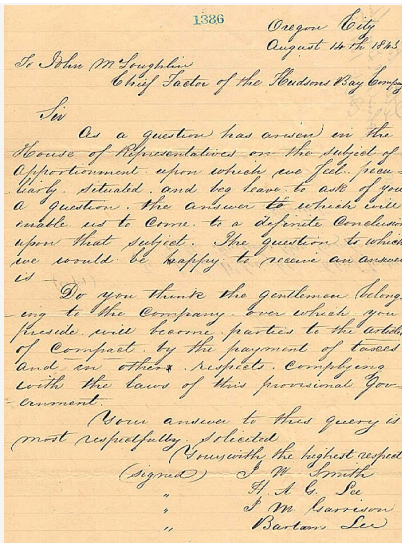 1386
Oregon City
August 14th 1845
To John McLoughlin
Chief Factor of the Hudsons Bay Company
Sir
As a question has arisen in the
House of Representatives on the subject of
apportionment upon which we feel pecu-
-liarly situated and beg leave to ask of you
a question the answer to which will
enable us to come to a definite conclusion
upon that subject. The question to which
we would be happy to receive an answer
is
Do you think the gentlemen belong-
ing to the company over which you
preside will become parties to the articles
of compact by the payment of taxes
and in other respects complying
with the laws of this provisional Gov-
-ernment
Your answer to this query is
most respectfully solicited
Yours with the highest respect
(signed) J W Smith
" H A G Lee
" J M Garrison
" Barton Lee